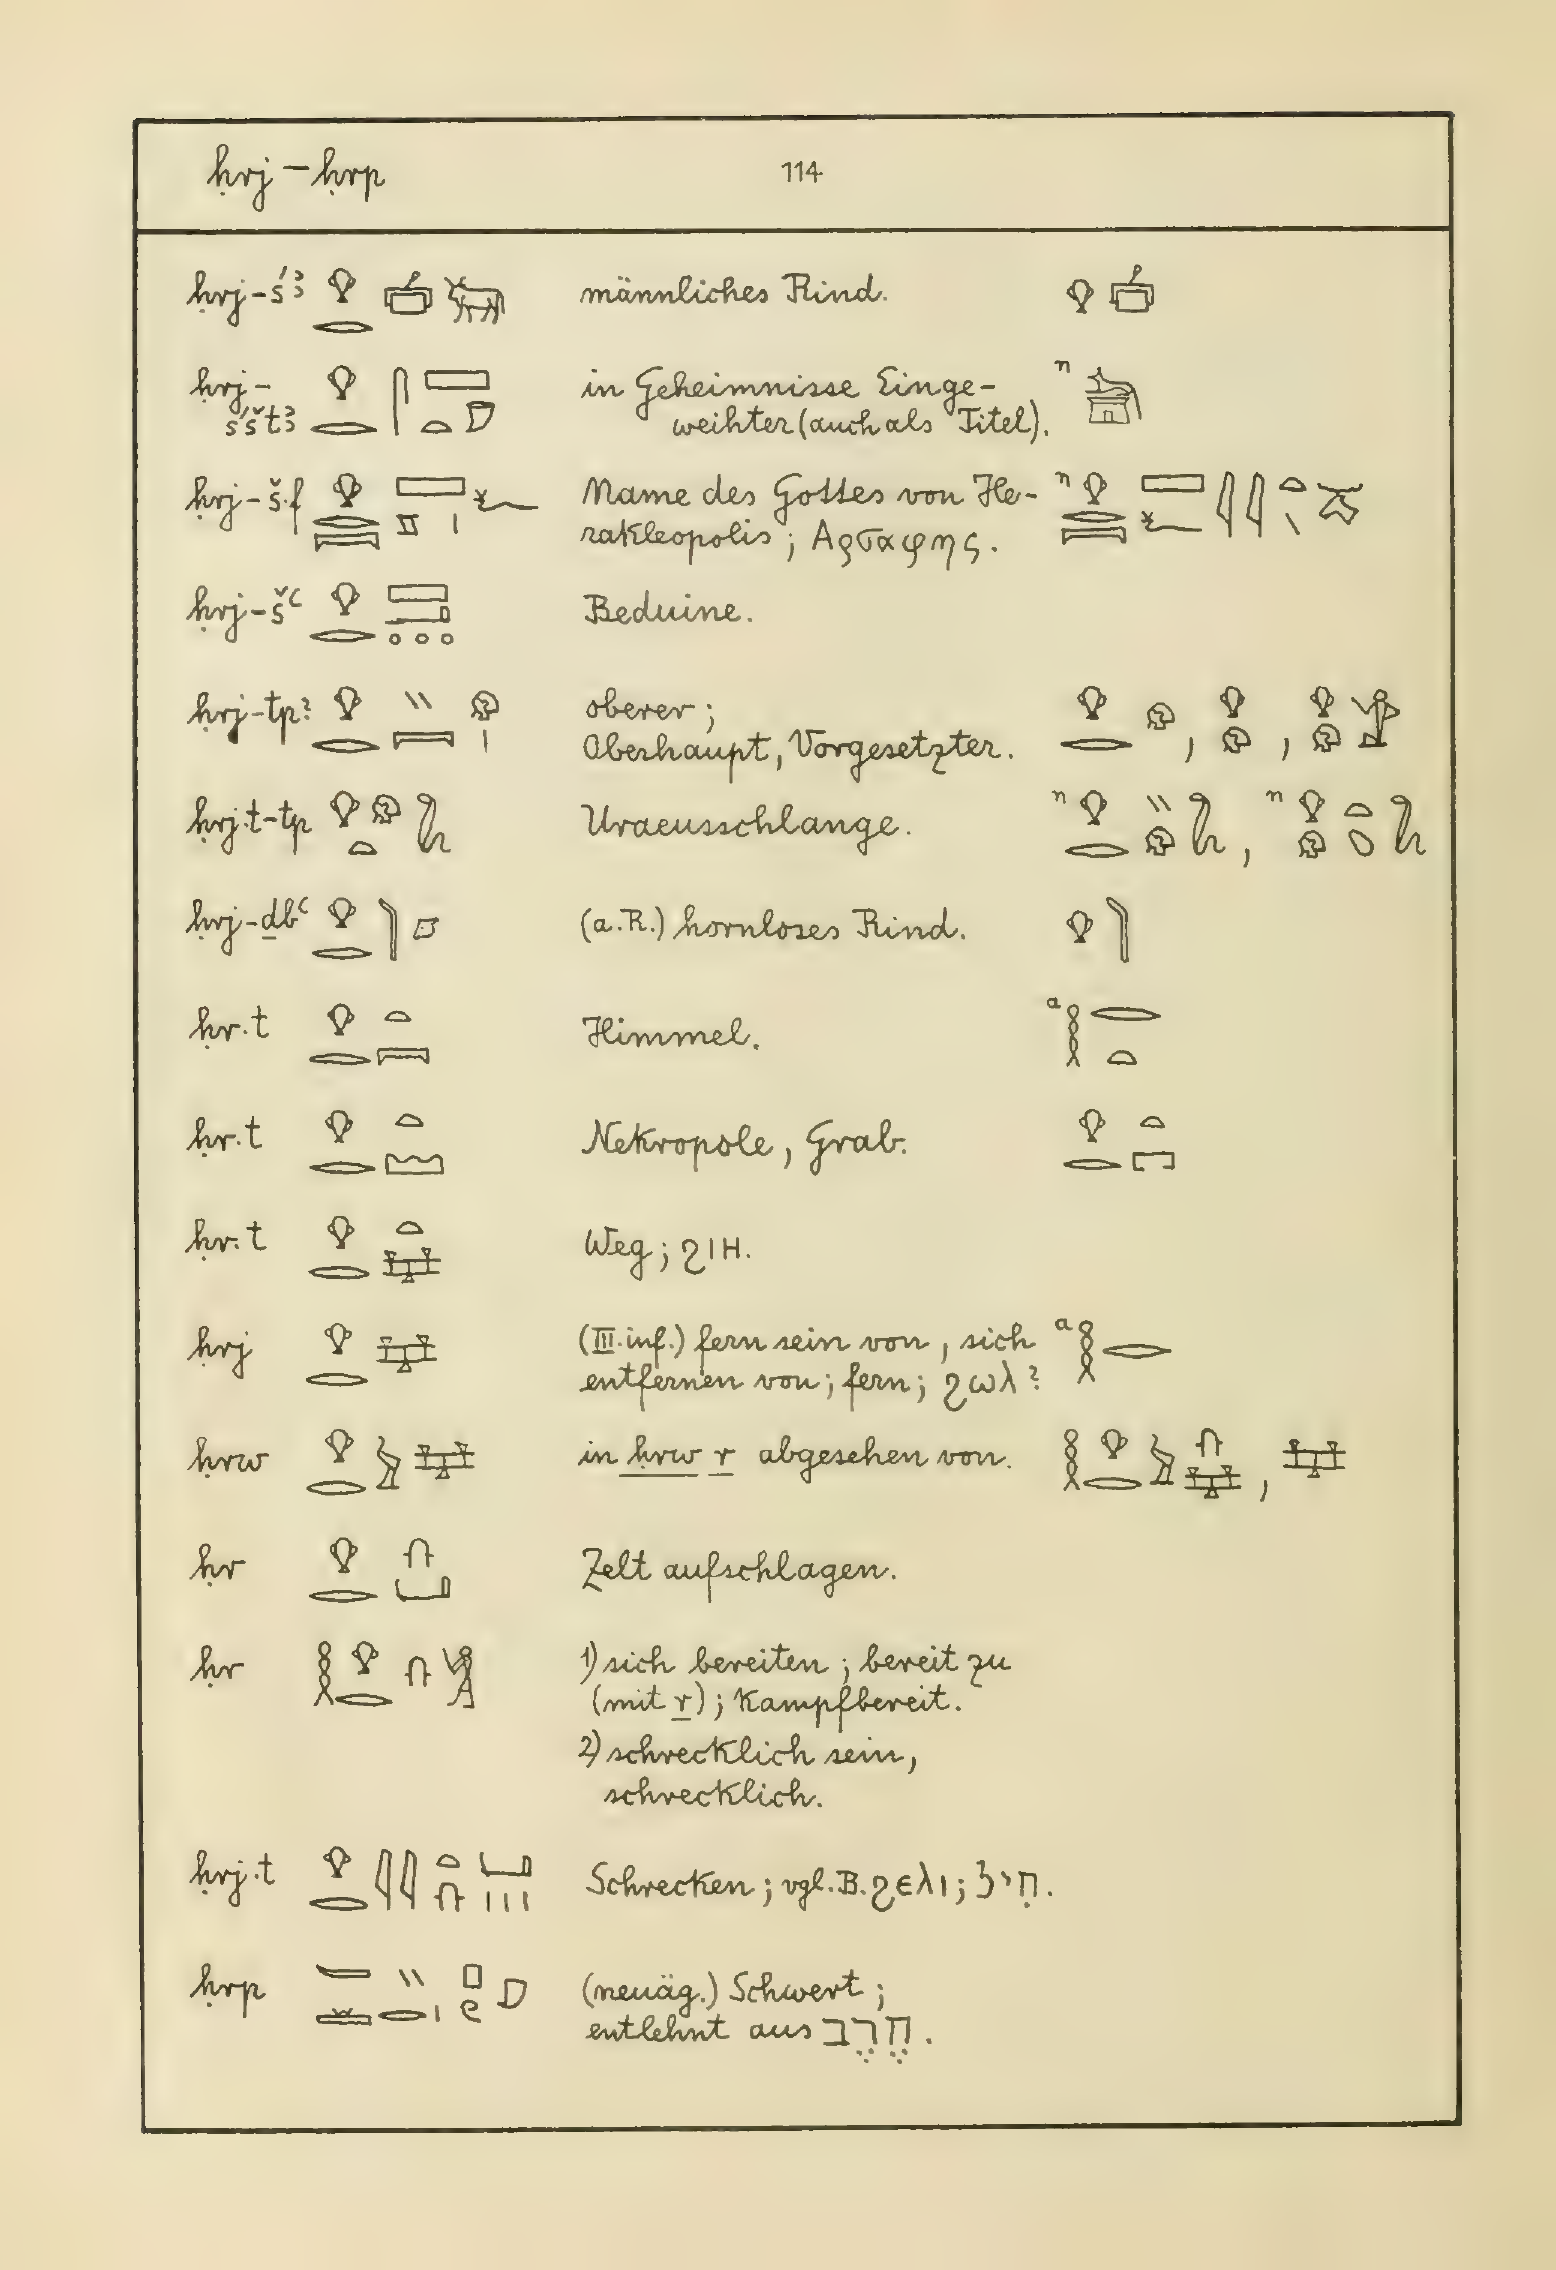 ḥrj – ḥrp 114
ḥrj-ś3 männliches Rind.
ḥrj- in Geheimnisse Einge-
śšt3 weihter (auch als Titel). n
ḥrj-š.f Name des Gottes von He- n
rakleopolis; Αρσαφης.
ḥrj-šꜥ Beduine.
ḥrj-tp? oberer;
Oberhaupt, Vorgesetzter. , ,
ḥrj.t-tp Uraeusschlange. n , n
ḥrj-dbꜥ (a.R.) hornloses Rind.
ḥr.t Himmel. a
ḥr.t Nekropole, Grab.
ḥr.t Weg; ϩιн.
ḥrj (III.inf.) fern sein von, sich a
entfernen von; fern; ϩωλ?
ḥrw in ḥrw r abgesehen von. ,
ḥr Zelt aufschlagen.
ḥr 1) sich bereiten; bereit zu
(mit r); kampfbereit.
2) schrecklich sein,
schrecklich.
ḥrj.t Schrecken; vgl. B. ϩελι; חִיל.
ḥrp (neuäg.) Schwert;
entlehnt aus חֶרֶב.